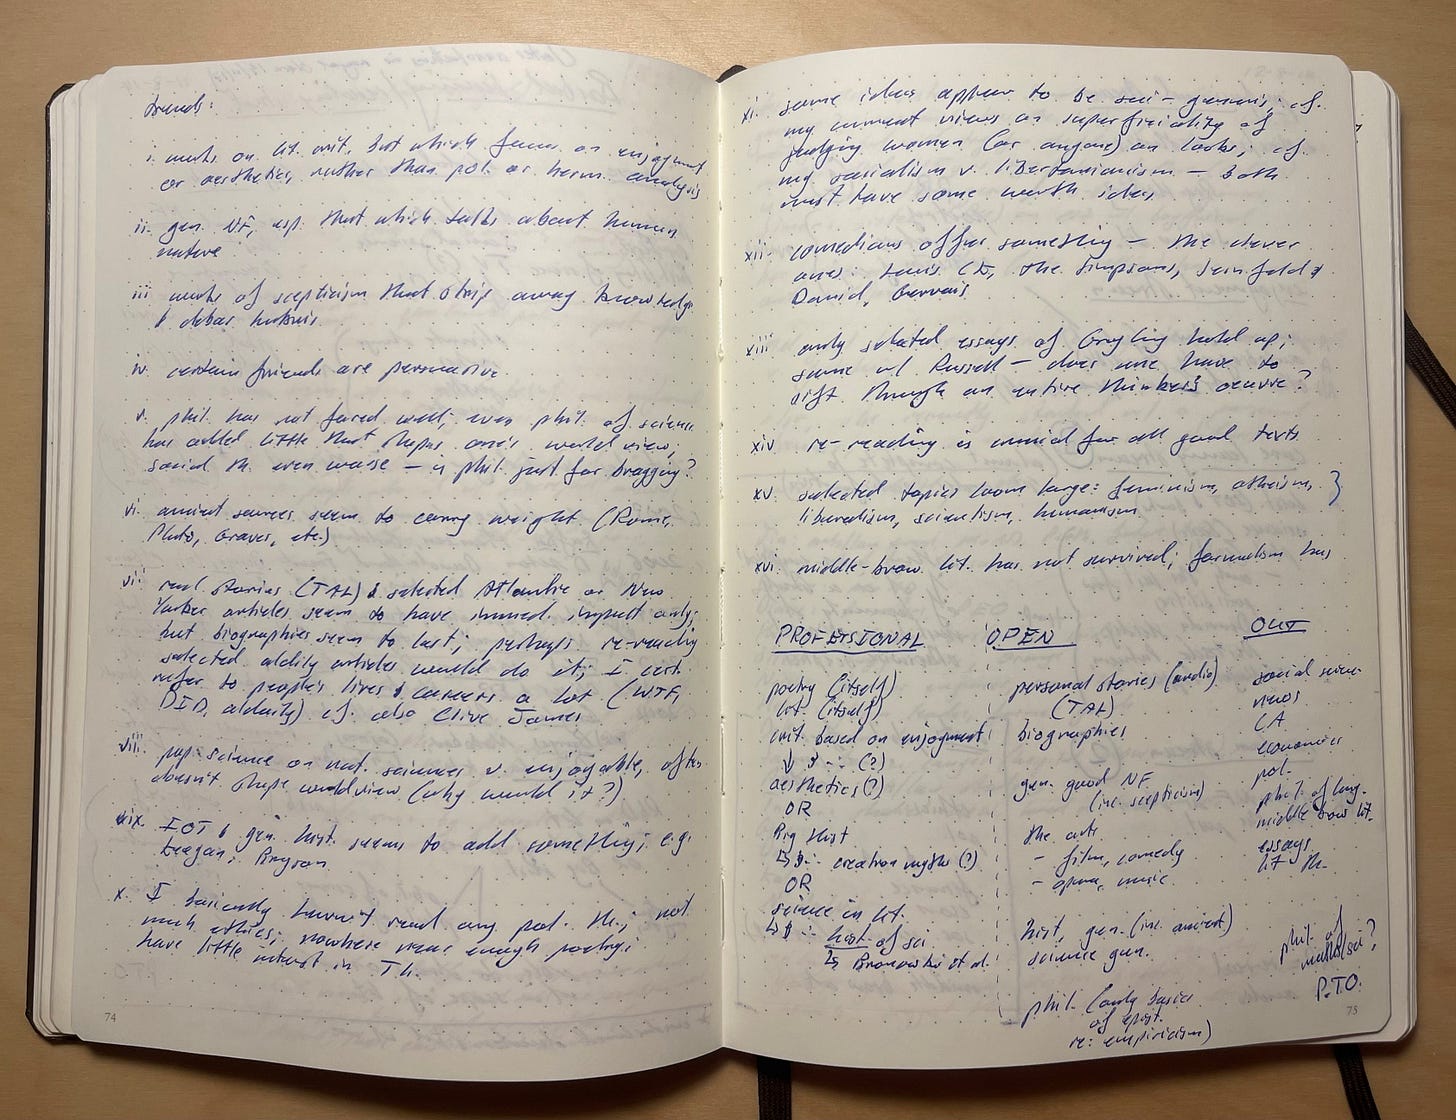 trends:
i. works on lit. crit., but which focus on enjoyment
or aesthetics, rather than pol. or herm. analysis
ii. gen. NF, esp. that which talks about human
nature
iii works of scepticism that strip away knowledge
& debar hubris.
iv. certain friends are persuasive.
v. phil. has not fared well; even phil. of science
has added little that shapes one's world view;
social th. even worse — is phil. just for bragging?
vi. ancient sources seem to carry weight (Rome,
Pluto, Graves, etc.)
vii real stories (TAL) & selected Atlantic or New
Yorker articles seem to have immed. impact only;
but biographies seem to last; perhaps re-reading
selected aldaily articles would do it; I cert.
refer to people's lives & careers a lot (WTF,
DID, aldaily) cf. also Clive James
viii. pop. science or nat. sciences v. enjoyable, often
doesn't shape worldview (why would it?)
ix. IOT & gen. hist. seems to add something; e.g.
Reagan; Bryson
x. I basically haven't read any pol. th.; not
much ethics; nowhere near enough poetry;
have little interest in Th.
74
xi. some ideas appear to be sui-generis; cf.
my current views on superficiality of
judging women (or anyone) on looks; cf.
my socialism v. libertarianism — both
must have some worth ideas
xii. comedians offer something — the clever
ones: Louis CK, The Simpsons, Seinfeld &
David, Gervais
xiii only selected essays of Grayling hold up;
same w/ Russell — does one have to
sift through an entire thinker's oeuvre?
xiv re-reading is crucial for all good texts
xv. selected topics loom large: feminism, atheism,
liberalism, scientism, humanism
xvi. middle-brow lit. has not survived; journalism has
PROFESSIONAL OPEN OUT
poetry (itself)
lit (itself)
crit. based on enjoyment
(?)
aesthetics (?)
OR
Big Hist
creation myths (?)
OR
science in lit.
hist of sci
Bronowski et al.
personal stories (audio)
(TAL)
biographies
gen. good NF
(inc. scepticism)
the arts
- film, comedy
- opera, music
hist, gen. (inc. ancient)
science gen.
phil. (only basics
of epist.
re: empiricism)
social scien.
news
CA
economics
pol.
phil. of lang.
middle brow lit.
essays
lit th.
phil. of
maths/sci?
P.T.O.
75